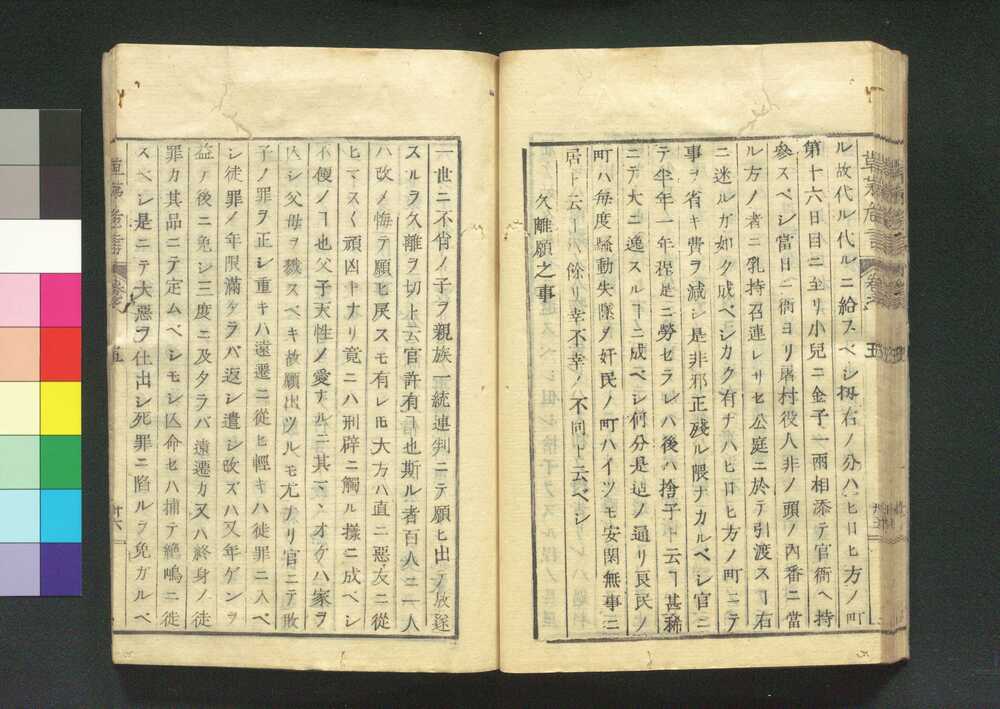 ル故代ル代ルニ給スベシ扨右ノ分ハヒロヒ方ノ町
第十六日目ニ至リ小兒ニ金子一兩相添テ官衙ヘ持
參スベシ當日ニ衙ヨリ屠村役人非ノ頭ノ内番ニ當
ル方ノ者ニ乳持召連レサセ公庭ニ於テ引渡スヿ右
ニ迷ルガ如ク成ベシカク有ナハヒロヒ方ノ町ニテ
事ヲ省キ費ヲ減シ是非邪正殘ル隈ナカルベシ官ニ
テ半年一年捏是ニ勞セラレバ後ハ捨子ト云ヿ甚稀
ニテ大ニ逸スルヿニ成ベシ何分是迠ノ通リ良民ノ
町ハ毎度騷動失墜ヲ奸民ノ町ハイツモ安閑無事ニ
居ト云ハ餘リ幸不幸ノ不同ト云ベシ
久離願之事
一世ニ不肖ノ子ヲ親族一統連判ニテ願ヒ出テ放逐
スルヲ久離ヲ切ト云官許有ヿ也斯ル者百人ニ一人
ハ改メ悔テ願ヒ戻スモ有レ𪜈大方ハ直ニ惡友ニ從
ヒマスく頑凶トナリ竟ニハ刑辟ニ觸ル樣ニ成ベシ
不便ノヿ也父子天性ノ愛ナルニ其マヽオケハ家ヲ
亡シ父母ヲ戮スベキ故願出ツルモ尤ナリ官ニテ此
子ノ罪ヲ正シ重キハ遠遷ニ從ヒ輕キハ徒罪ニ入ベ
シ徒罪ノ年限滿ケラバ返シ遣シ改ズハ又年ゲンヲ
益ノ後ニ免シ三度ニ及タラバ遠遷カ又ハ終身ノ徒
罪カ其品ニテ定ムベシモシ亡命セハ捕テ絶嶋ニ徙
スベシ是ニテ大惡ヲ仕出シ死罪ニ陷ルヲ免ガルベ